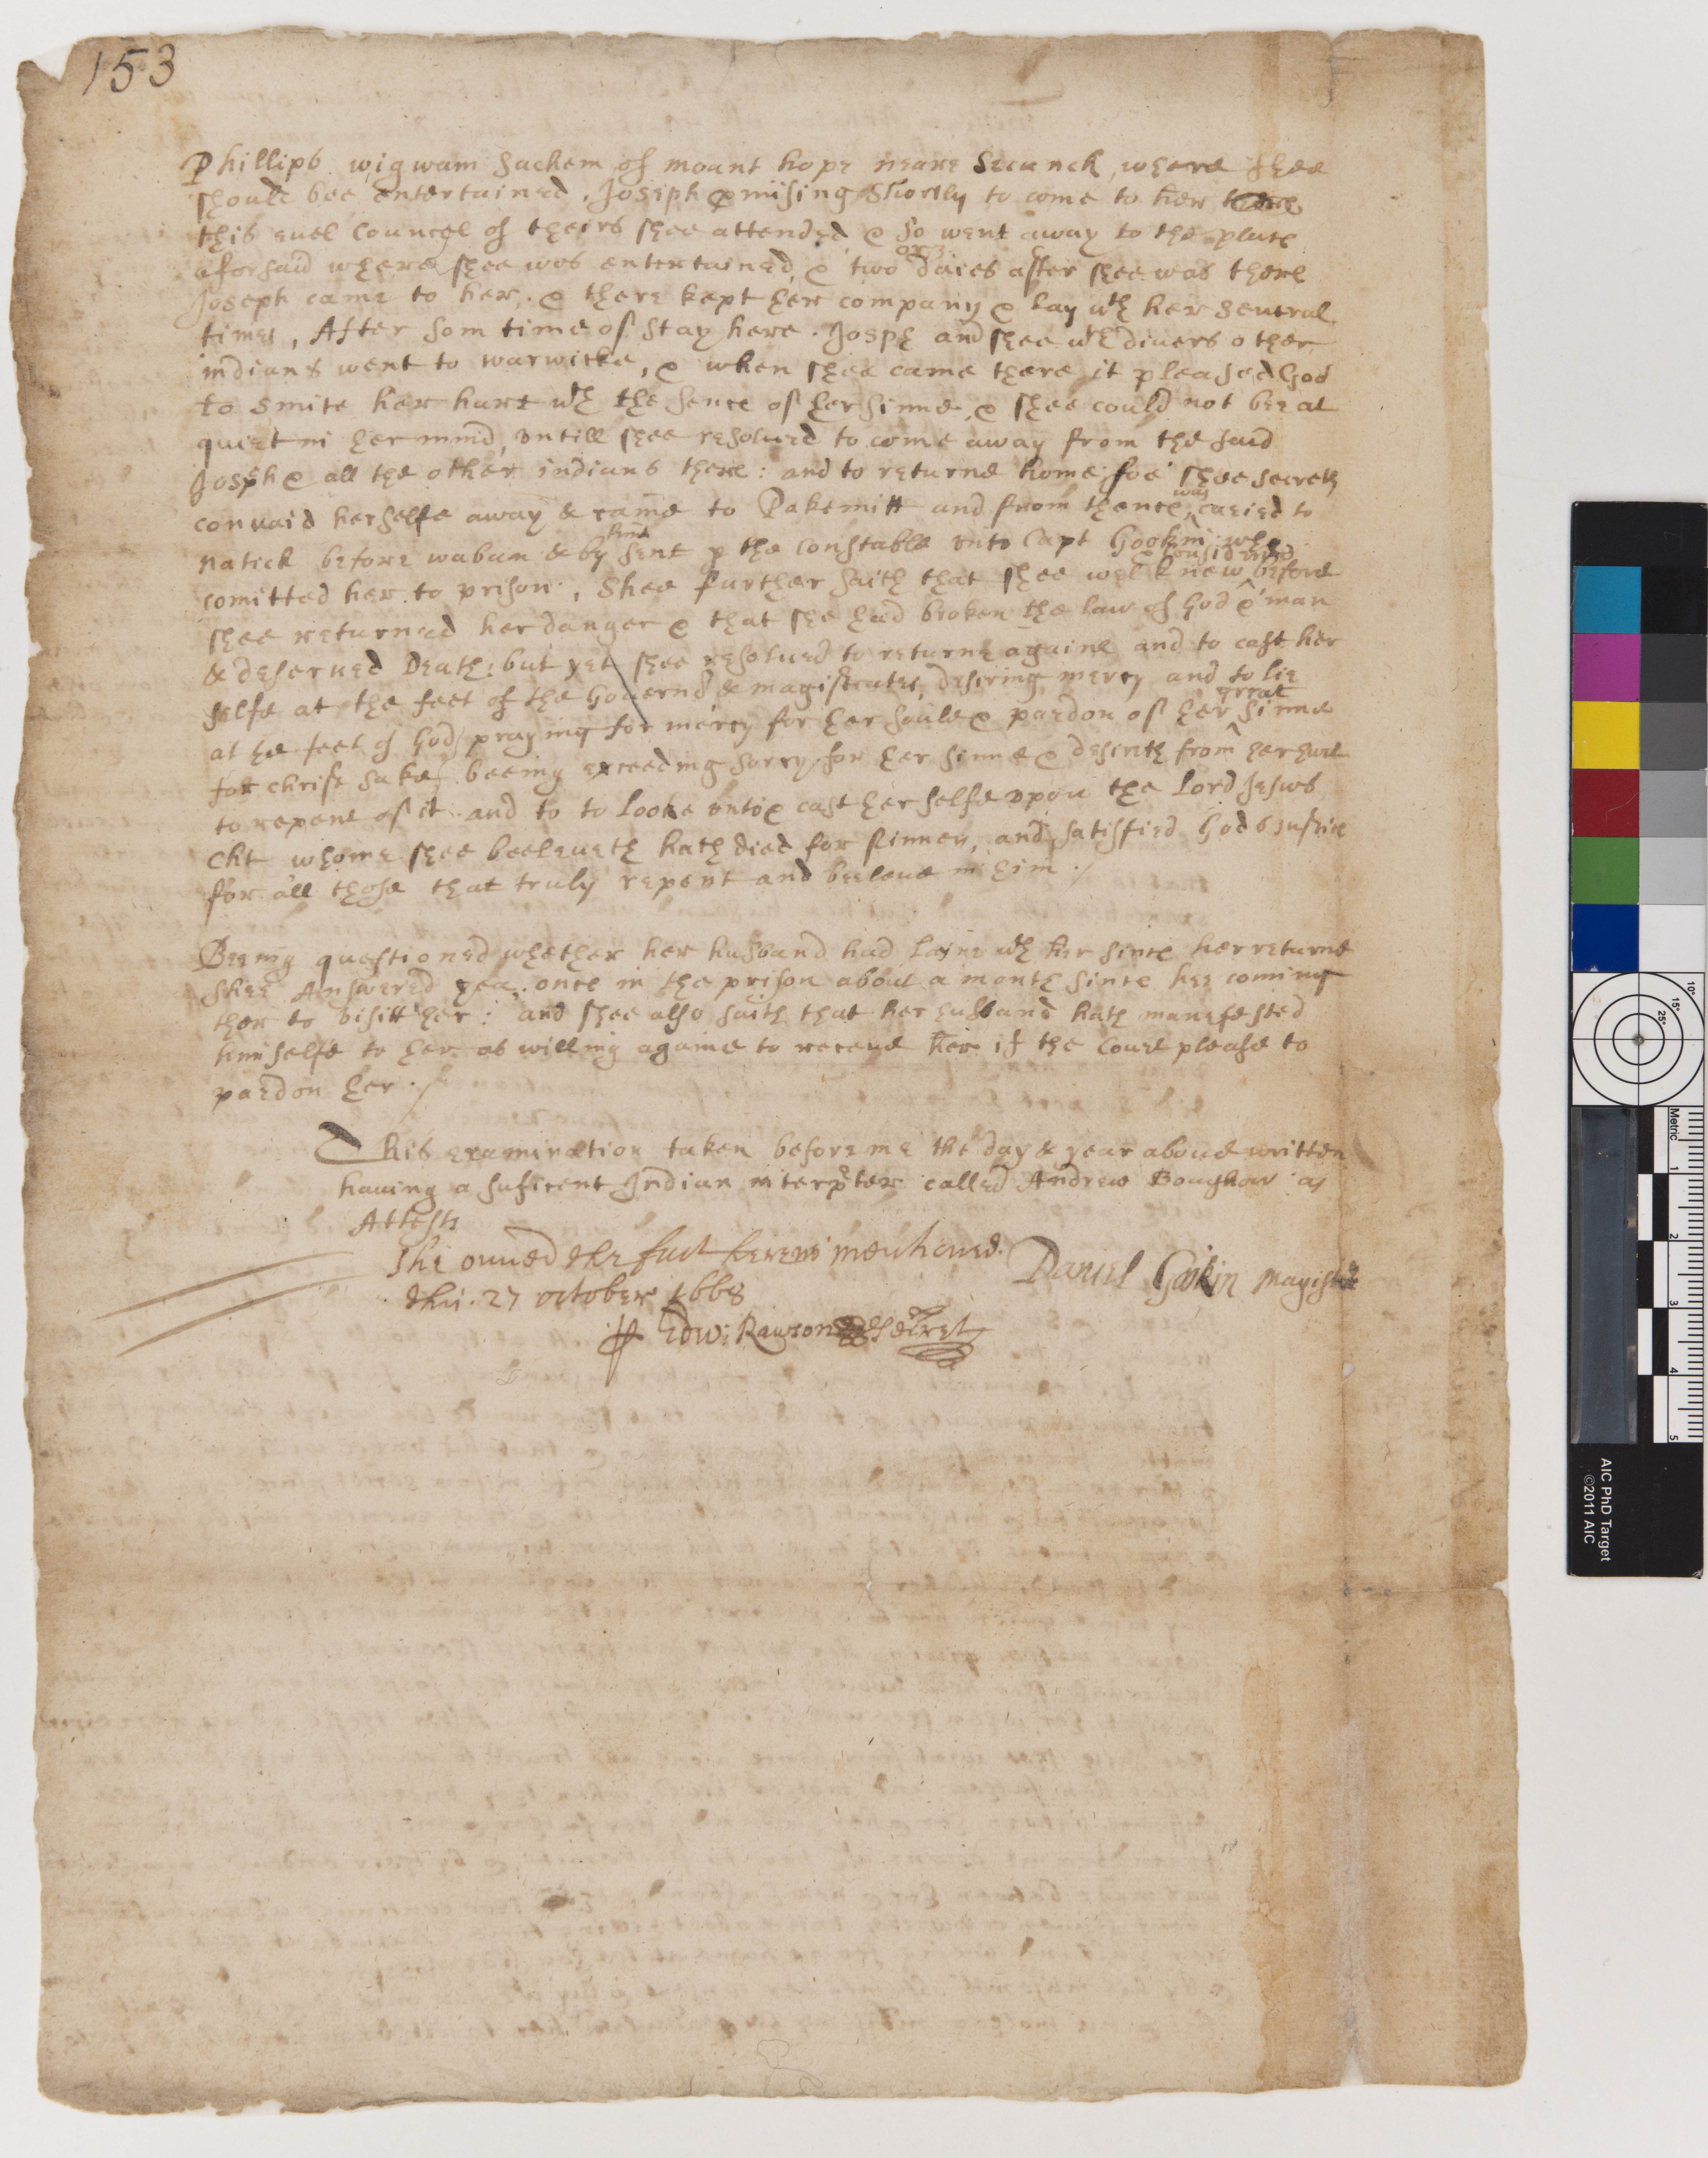 153
Phillips wigwam Sachem of mount hope neare Secunck, where shee
should bee entertained, Joseph pmising Shortly to come to her there
this euel Councel of theirs shee attended & so went away to the place
aforsaid where shee was entertained, & two or 3 daies after shee was there
Joseph came to her. & there kept her company & lay wth her seueral
times, After som time of stay here. Josph and shee wth diuers other
indians went to warwicke, & when shee came there it pleased God
to smite her hart wth the sence of her sinne & shee could not bee at
quiet in her mind, vntill shee resolued to come away from the said
Joseph & all the other indians there: and to returne home; soe shee secretly
convaid herselfe away & came to Pakemitt and from thence was caried to
natick before waban & by him sent p the constable vnto Capt Gookin who
comitted her to prison. Shee further saith that shee wel knew & considered before
shee returned her danger & that she had broken the law of God & man
& deserued Death: but yet shee resolued to returne againe and to cast her
selfe at the feet of the Gouernor & magistrates, desiring mercy and to lie
at the feet of God praying for mercy for her soule & pardon of her great sinne
for christ sake, beeing exceeding sorry for her sinne & desireth from her hart
to repent of it and to to looke vnto & cast her selfe vpon the Lord Jesus
Cht whome shee beeleueth hath died for sinners, and satisfied Gods Justice
for all those that truly repent and beeleue in him ./
Beeing questioned whether her husband had layne wth her since her returne
shee Answered yea, once in the prison about a month since hee coming
ther to visitt her: and shee also saith that her husband hath manefested
himselfe to her as willing againe to receue her if the Court please to
pardon her ./
This examination taken before me the day & year aboue written
hauing a suficent Indian interpter called Andrew Boughow as
Attests
She owned the fact herein mentioned.
this. 27 october 1668
Daniel Gookin magistrate
p Edw: Rawson Secret
10°
15°
25°
Metric
1
2
3
4
5
AIC PhD Target
©2011 AIC